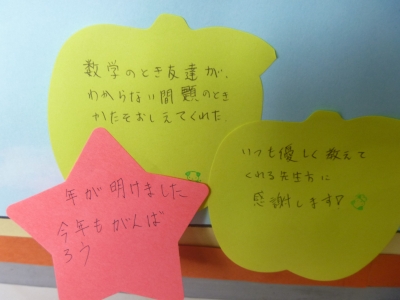 数学のとき友達が、
わからない問題のとき
かたをおしえてくれた。
いつも優しく教えて
くれる先生方に
感謝します?
年が明けました
今年もがんば
ろう